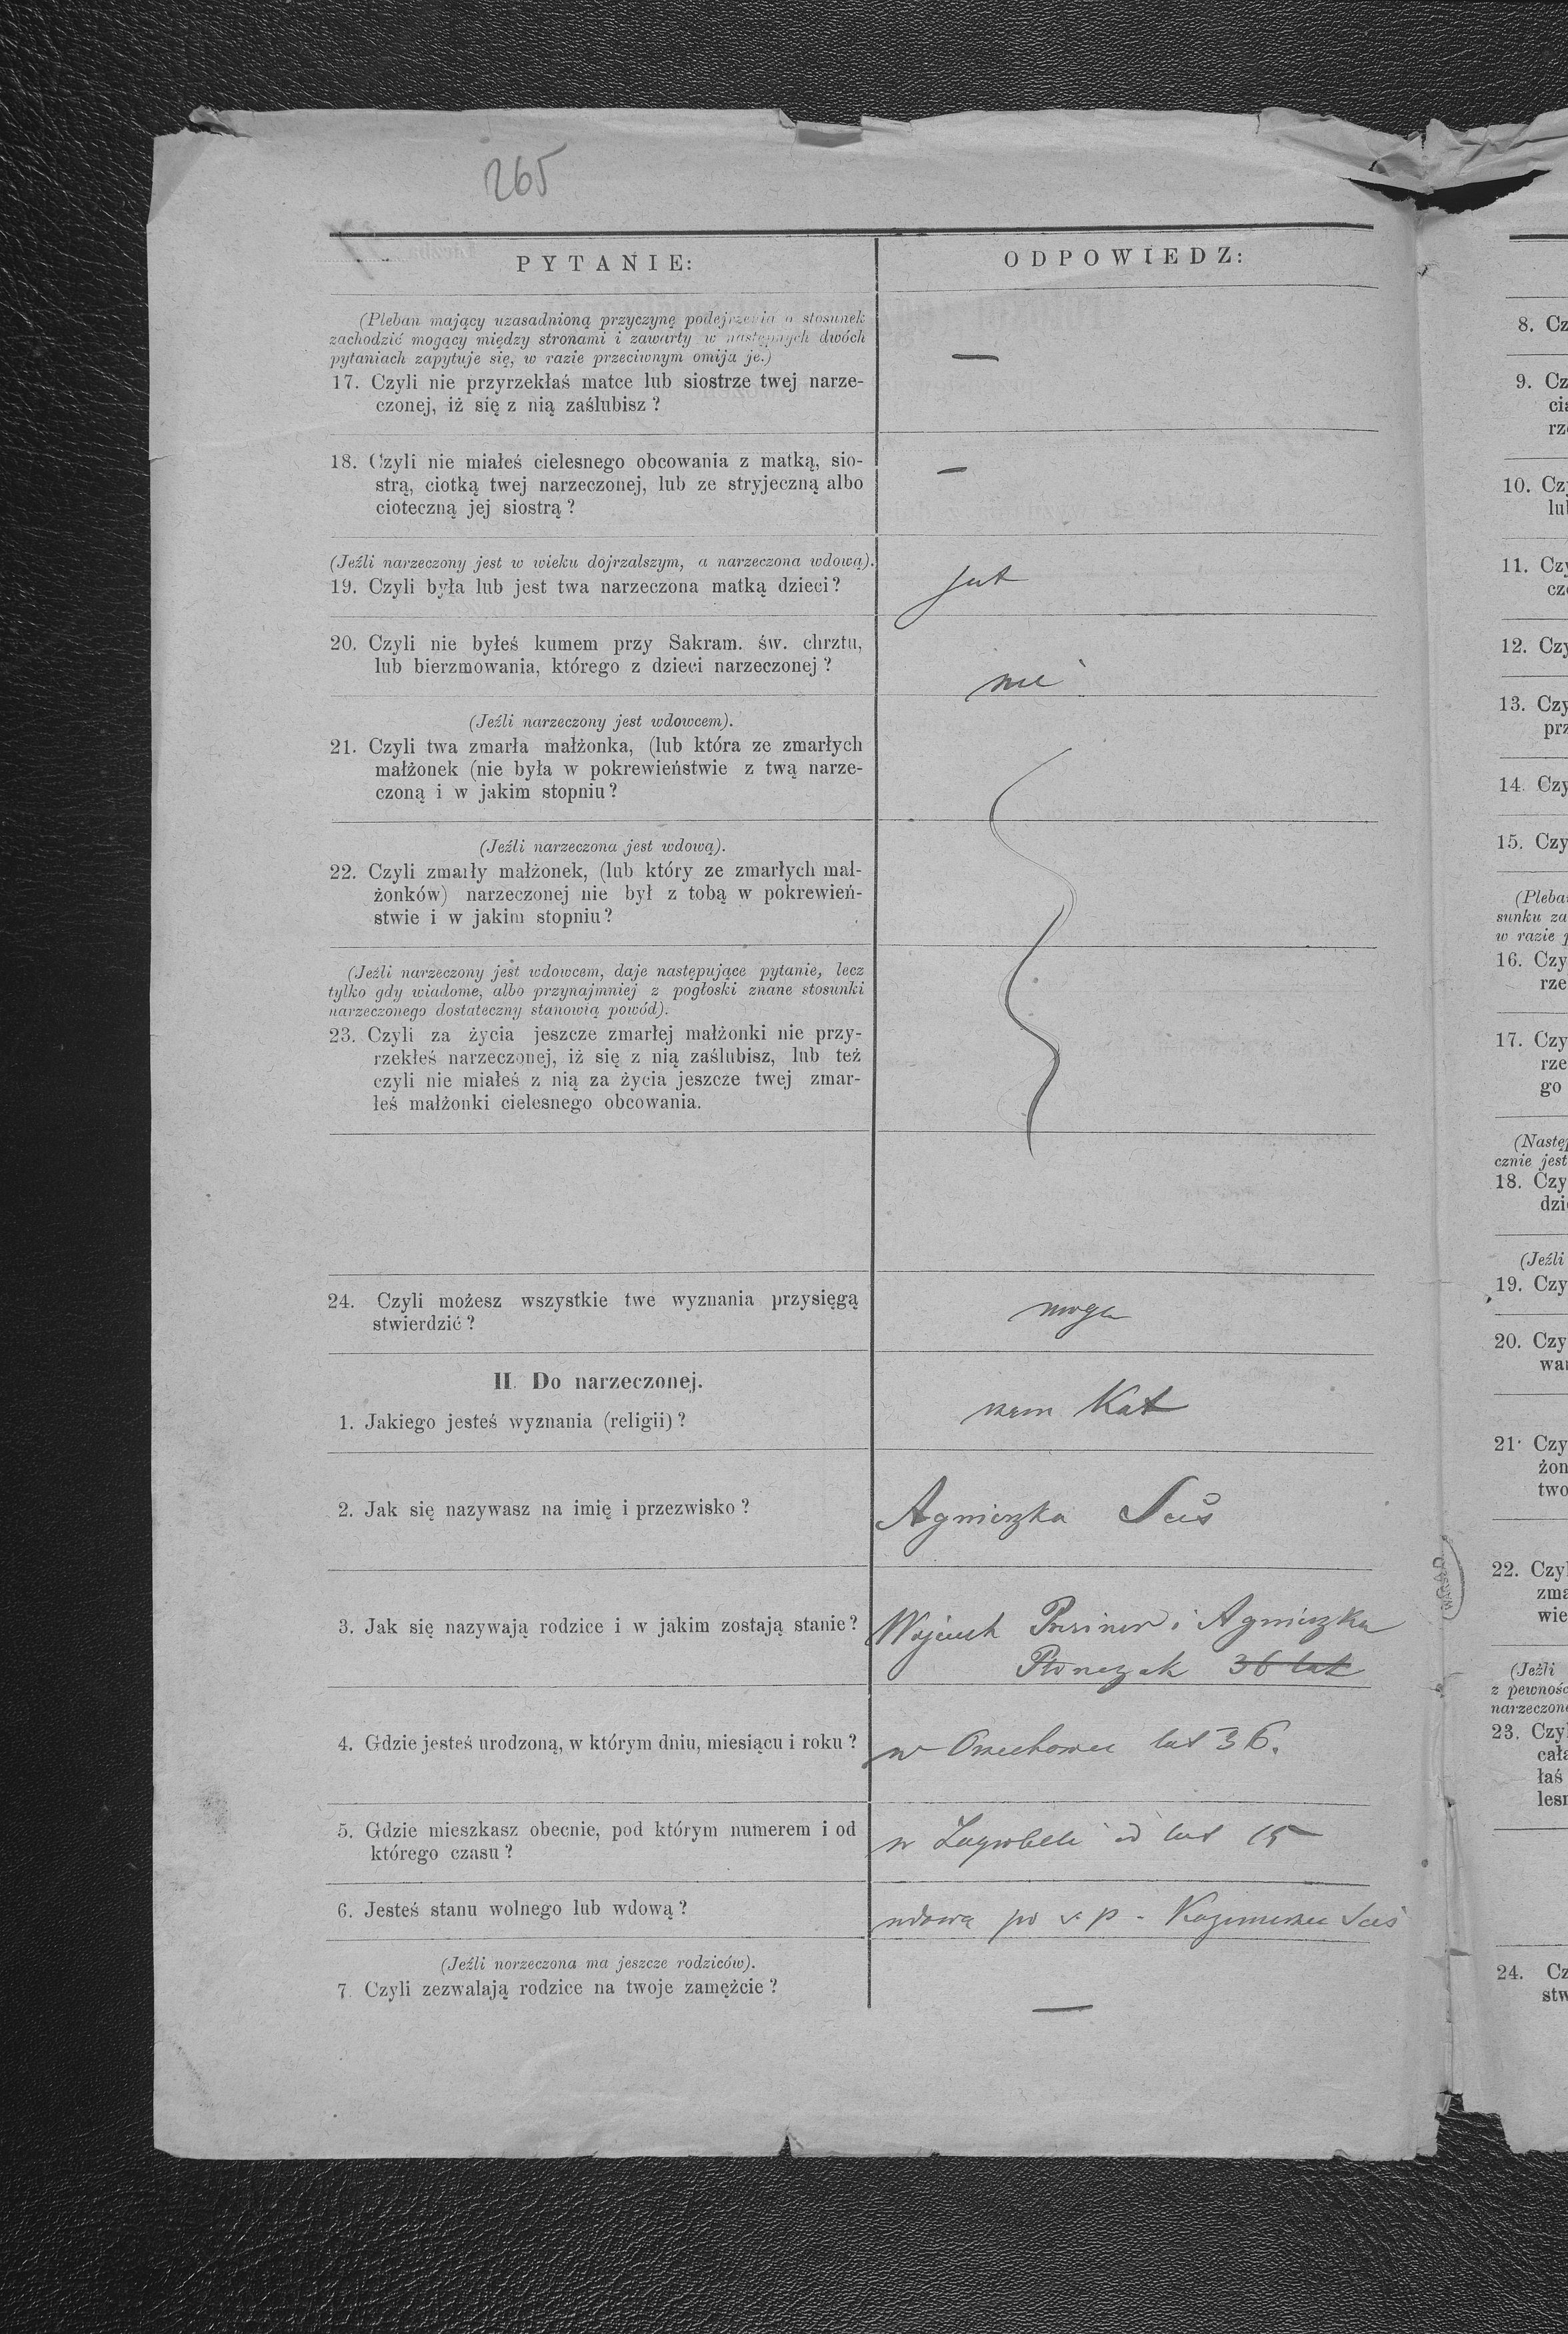 265
PYTANIE:
ODPOWIEDZ:
(Pleban mający uzasadnioną przyczynę podejrzenia o stosunek
zachodzić mogący między stronami i zawarty w następnych dwóch
pytaniach zapytuje się, w razie przeciwnym omija je.)
17. Czyli nie przyrzekłaś matce lub siostrze twej narze-
czonej, iż się z nią zaślubisz?
—
18. Czyli nie miałeś cielesnego obcowania z matką, sio-
strą, ciotką twej narzeczonej, lub ze stryjeczną albo
cioteczną jej siostrą?
—
(Jeźli narzeczony jest w wieku dojrzalszym, a narzeczona wdową).
19. Czyli była lub jest twa narzeczona matką dzieci?
jest
20. Czyli nie byłeś kumem przy Sakram. św. chrztu,
lub bierzmowania, którego z dzieci narzeczonej?
nie
(Jeźli narzeczony jest wdowcem).
21. Czyli twa zmarła małżonka, (lub która ze zmarłych
małżonek (nie była w pokrewieństwie z twą narze-
czoną i w jakim stopniu?
(Jeźli narzeczona jest wdową).
22. Czyli zmarły małżonek, (lub który ze zmarłych mał-
żonków) narzeczonej nie był z tobą w pokrewień-
stwie i w jakim stopniu?
(Jeźli narzeczony jest wdowcem, daje następujące pytanie, lecz
tylko gdy wiadome, albo przynajmniej z pogłoski znane stosunki
narzeczonego dostateczny stanowią powód).
23. Czyli za życia jeszcze zmarłej małżonki nie przy-
rzekłeś narzeczonej, iż się z nią zaślubisz, lub też
czyli nie miałeś z nią za życia jeszcze twej zmar-
łeś małżonki cielesnego obcowania.
24. Czyli możesz wszystkie twe wyznania przysięgą
stwierdzić?
mogę
II. Do narzeczonej.
1. Jakiego jesteś wyznania (religii)?
rzym Kat
2. Jak się nazywasz na imię i przezwisko?
Agnieszka Suś
3. Jak się nazywają rodzice i w jakim zostają stanie?
Wojciech i Agnieszka
36 lat
4. Gdzie jesteś urodzoną, w którym dniu, miesiącu i roku?
w Orzechowcu lat 36.
5. Gdzie mieszkasz obecnie, pod którym numerem i od
którego czasu?
w od lat 15
6. Jesteś stanu wolnego lub wdową?
wdowa po ś. p - Kazimierzu Suś
(Jeźli norzeczona ma jeszcze rodziców).
7. Czyli zezwalają rodzice na twoje zamężcie?
—
8. Cz
9. Cz
10. Cz
11. Czy
12. Czy
13. Czy
14. Czy
15. Czy
16. Czy
17. Czy
18. Czy
(Jeźli
19. Czy
20. Czy
21. Czy
22. Czyl
(Jeźli
23. Czyl
24. Cz